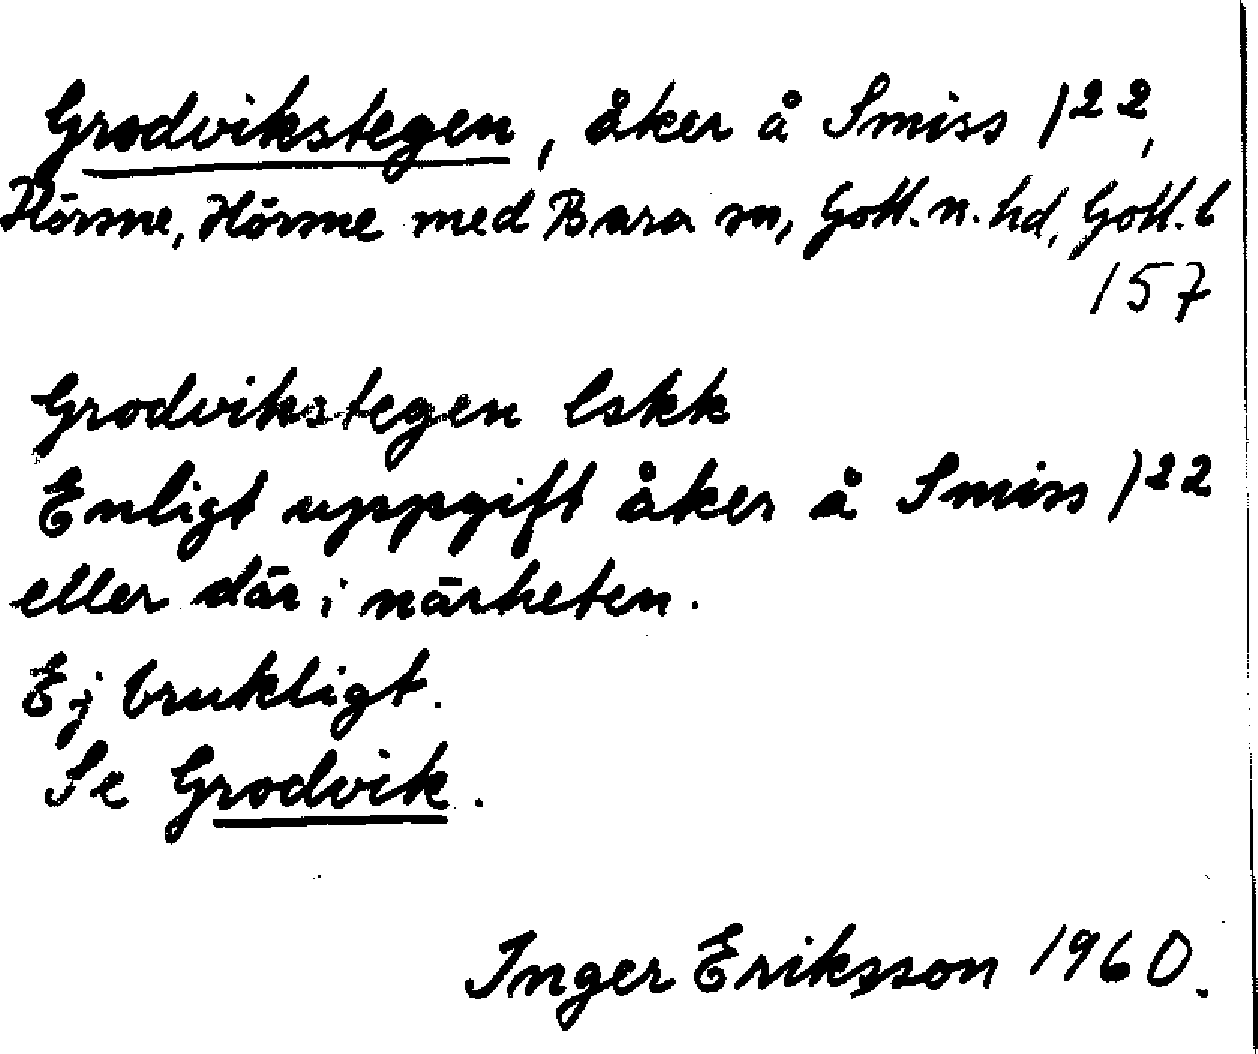 Grodvikstegen, åker å Smiss 1²²,
Hörsne, Hörsne med Bara sn, Gotl. n. hd, Gotl. l
157
Grodvikstegen Eskk
Enligt uppgift åker å Smiss 1²²
eller där i närheten.
Ej brukligt.
Se Grodvik.
Inger Eriksson 1960.